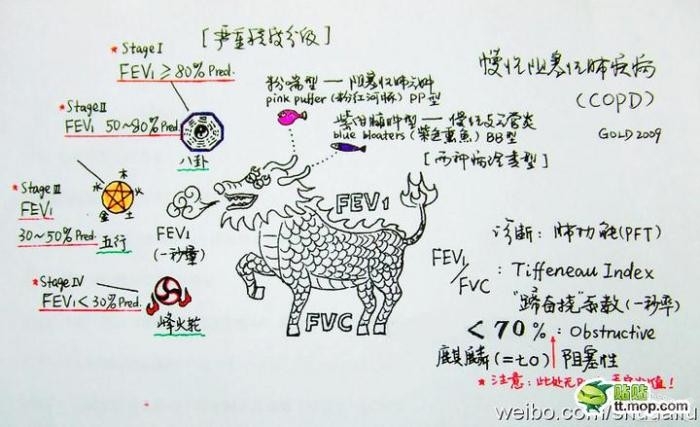 [严重程度分级]
* Stage I
FEV₁ ≥ 80% Pred.
八卦
* Stage II
FEV₁ 50~80% Pred.
* Stage III
FEV₁
30~50% Pred.
木
水 火
金 土
五行
* Stage IV
FEV₁ < 30% Pred.
烽火轮
FEV₁
(一秒量)
粉喘型 — 阻塞性肺气肿
pink puffer (粉红河豚) PP型
紫绀臃肿型 — 慢性支气管炎
blue bloaters (紫色熏鱼) BB型
[两种病理类型]
FEV₁
FVC
慢性阻塞性肺疾病
(COPD)
GOLD 2009
诊断: 肺功能(PFT)
FEV₁/FVC : Tiffeneau Index
"蹄奋挠"系数(一秒率)
< 70% : Obstructive
麒麟(=70) 阻塞性
* 注意: 此处无
值!
贴贴
tt.mop.com